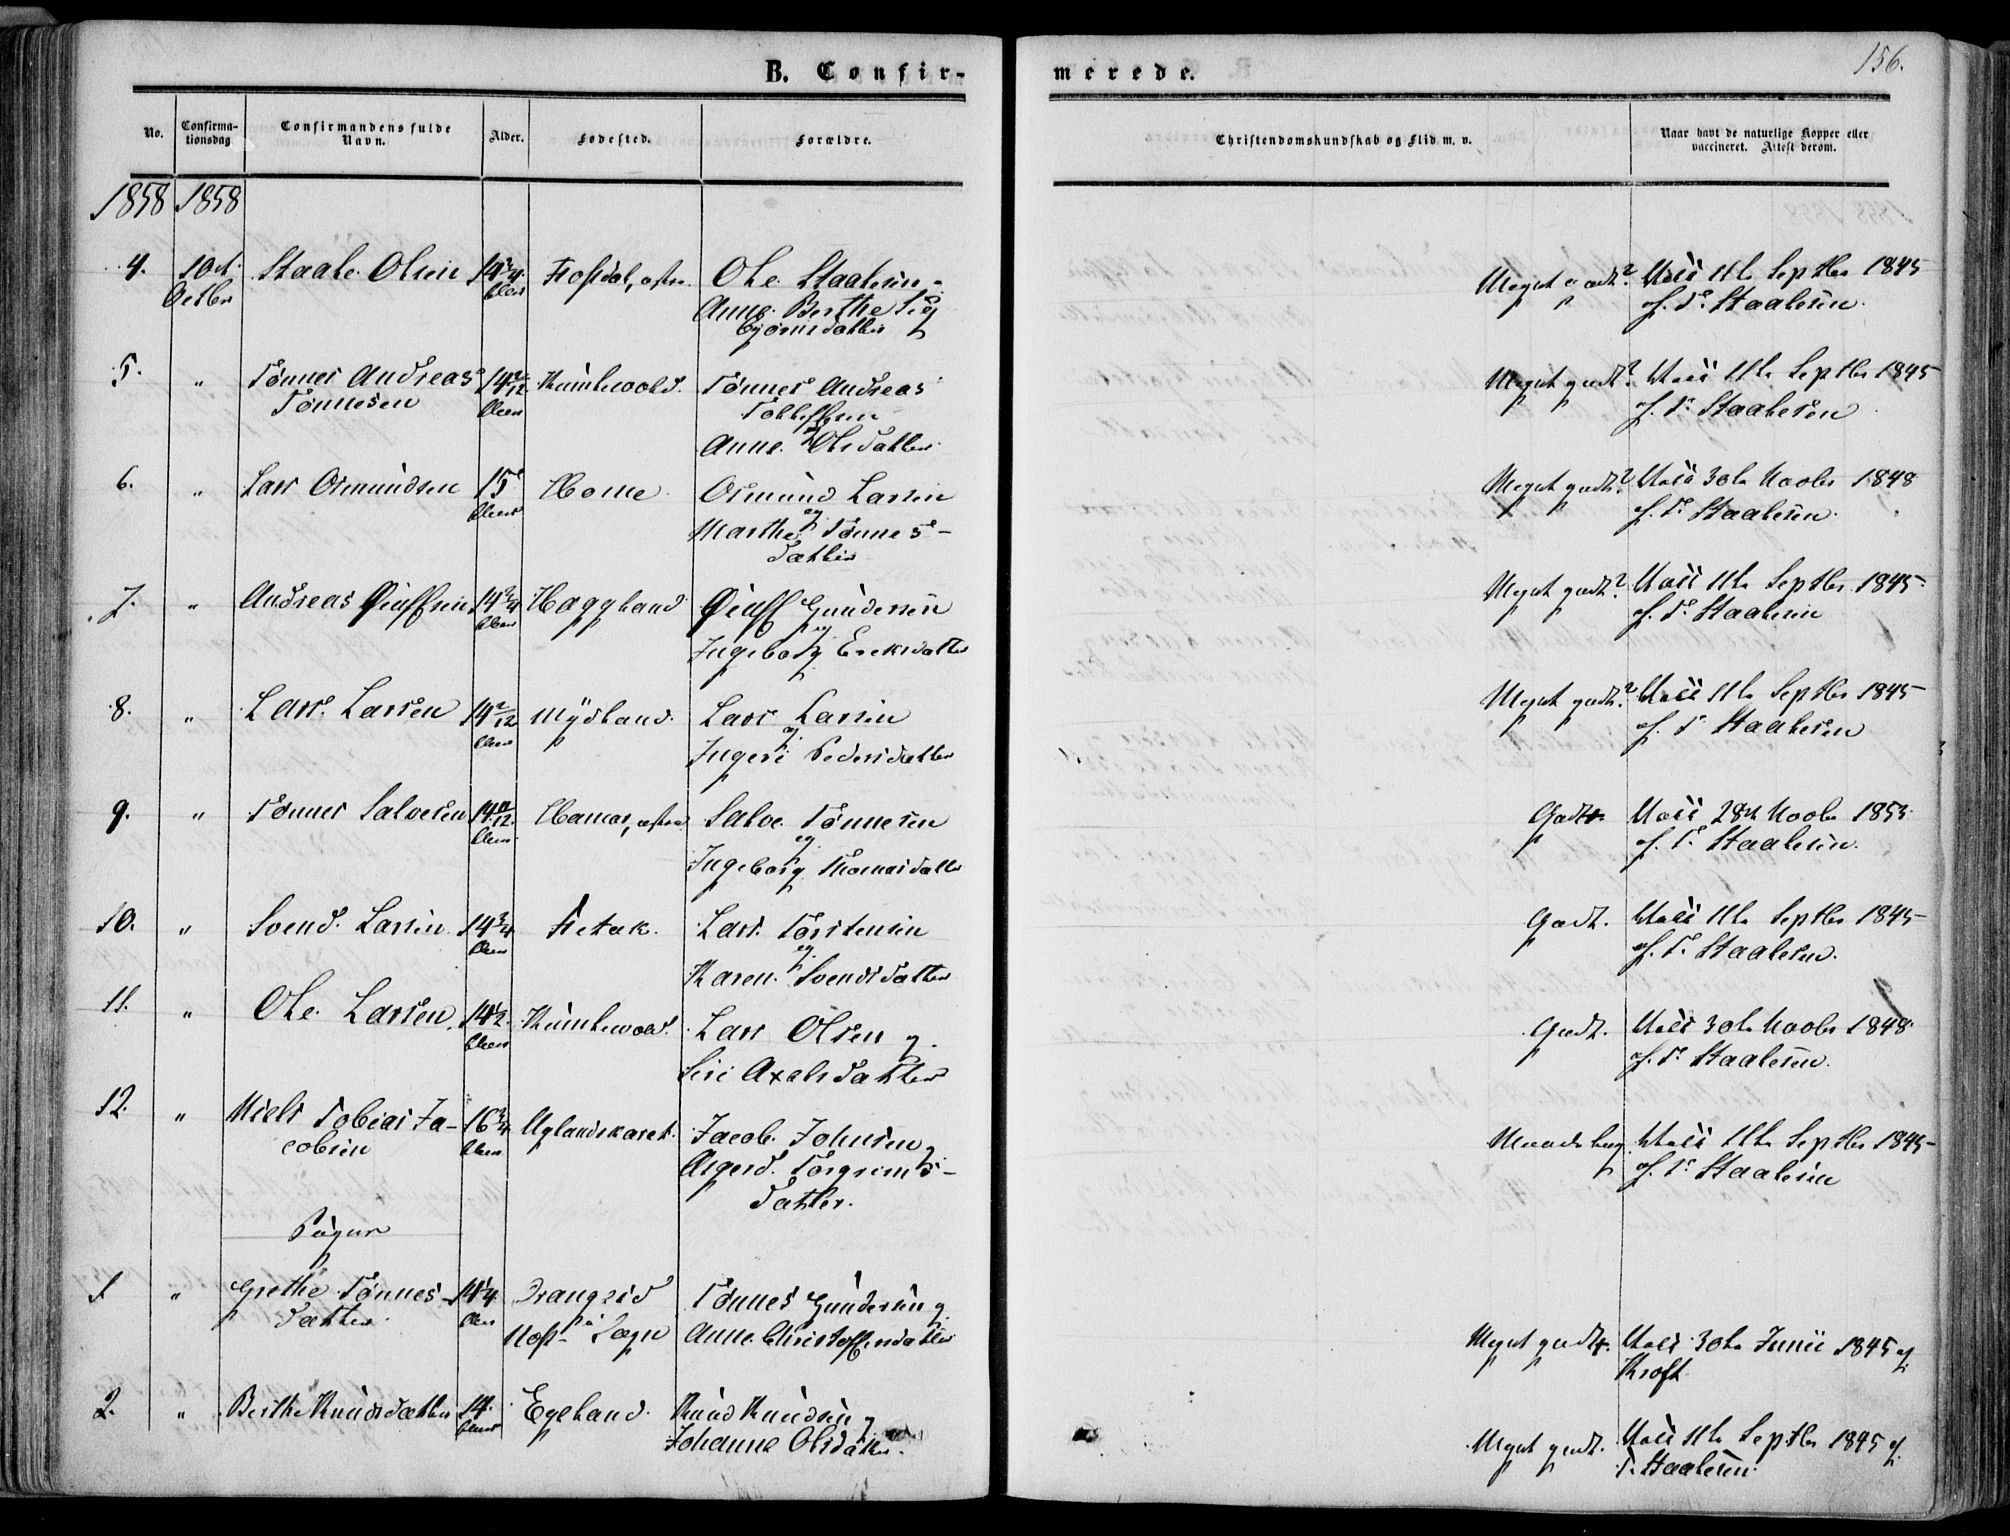 156.
B. Confir-
merede.
No.
Confirma-
tionsdag
Confirmandens fulde
Navn.
Alder.
Fødested.
Forældre.
Christendomskundskab og Flid m. v.
Naar havt de naturlige Kopper eller
vaccineret. Attest derom.
1858 1858
4. 10d. Staale Olsen 14 3/4 Ole Staalesen
Octbr Anne Berthe
Bjørnsdatter
Meget godt. Vacc 11te Septbr 1845
af T. Staalesen.
5. " Tønnes Andreas 14 2/12 Tønnes Andreas
Tønnesen
Anne Olsdatter
Meget godt. Vacc 11te Septbr 1845
af T. Staalesen
6. " Lars Osmundsen 15 Home Osmund Larsen
og
Marthe Tønnes-
datter
Meget godt. Vacc 30te Novbr 1848
af T. Staalesen.
7. " Andreas 14 3/4 Haggland Gundersen
og
Ingeborg Eriksdatter
Meget godt. Vacc 11te Septbr 1845
af T. Staalesen
8. " Lars Larsen 14 2/12 Mydland Lars Larsen
og
Ingeri Pedersdatter
Meget godt. Vacc 11te Septbr 1845
af T. Staalesen
9. " Tønnes Salvesen Salve Tønnesen
og
Ingeborg Thomasdatter
Godt. Vacc 28de Novbr 1853
af T. Staalesen.
10. " Svend Larsen 14 3/4 Fetak. Lars Torstensen
og
Karen Svendsdatter
Godt. Vacc 11te Septbr 1845
af T. Staalesen.
11. " Ole Larsen 14 1/2 Lars Olsen og
Siri Axelsdatter
Godt. Vacc 30te Novbr 1848
af T. Staalesen.
12. " Niels Tobias Ja- 16 3/4 Uglandskaret Jacob Johnsen og
cobsen
Asgerd Torgrims-
datter.
Maadelig. Vacc 11te Septbr 1845
af T. Staalesen
Piger
1 " Grethe Tønnes- 14 1/4 Drangeid Tønnes Gundersen og
datter. i Sogn Anne Christoffersdatter
Meget godt. Vacc 30te Junii 1845 af
Kroft
2. " Berthe Knudsdatter 14 Egeland Knud Knudsen og
Johanne Olsdatter.
Meget godt. Vacc 11te Septbr 1845 af
T. Staalesen.